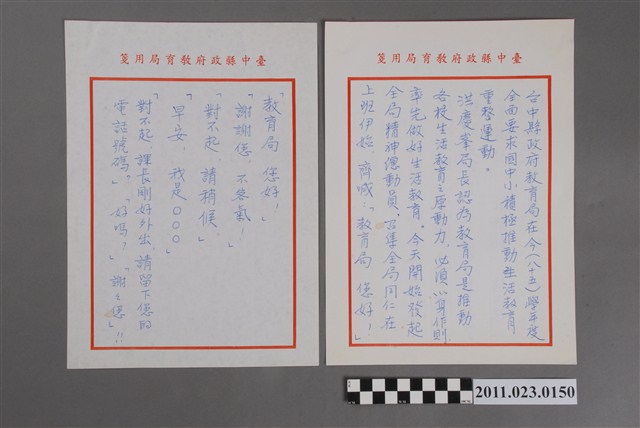 箋用局育教府政縣中臺
台中縣政府教育局在今(八十五)學年度
全面要求國中小積極推動生活教育
重整運動。
洪慶峯局長認為教育局是推動
各校生活教育之原動力,必須以身作則
率先做好生活教育。今天開始發起
全局精神總動員。召集全局同仁在
上班伊始,齊喊:「教育局 您好!」
箋用局育教府政縣中臺
「教育局 您好」
「謝謝您,不客氣」
「對不起、請稍候」
「早安,我是○○○」
「對不起 課長剛好外出,請留下您的
電話號碼。」「好嗎!」「謝謝您」!!
2011.023.0150